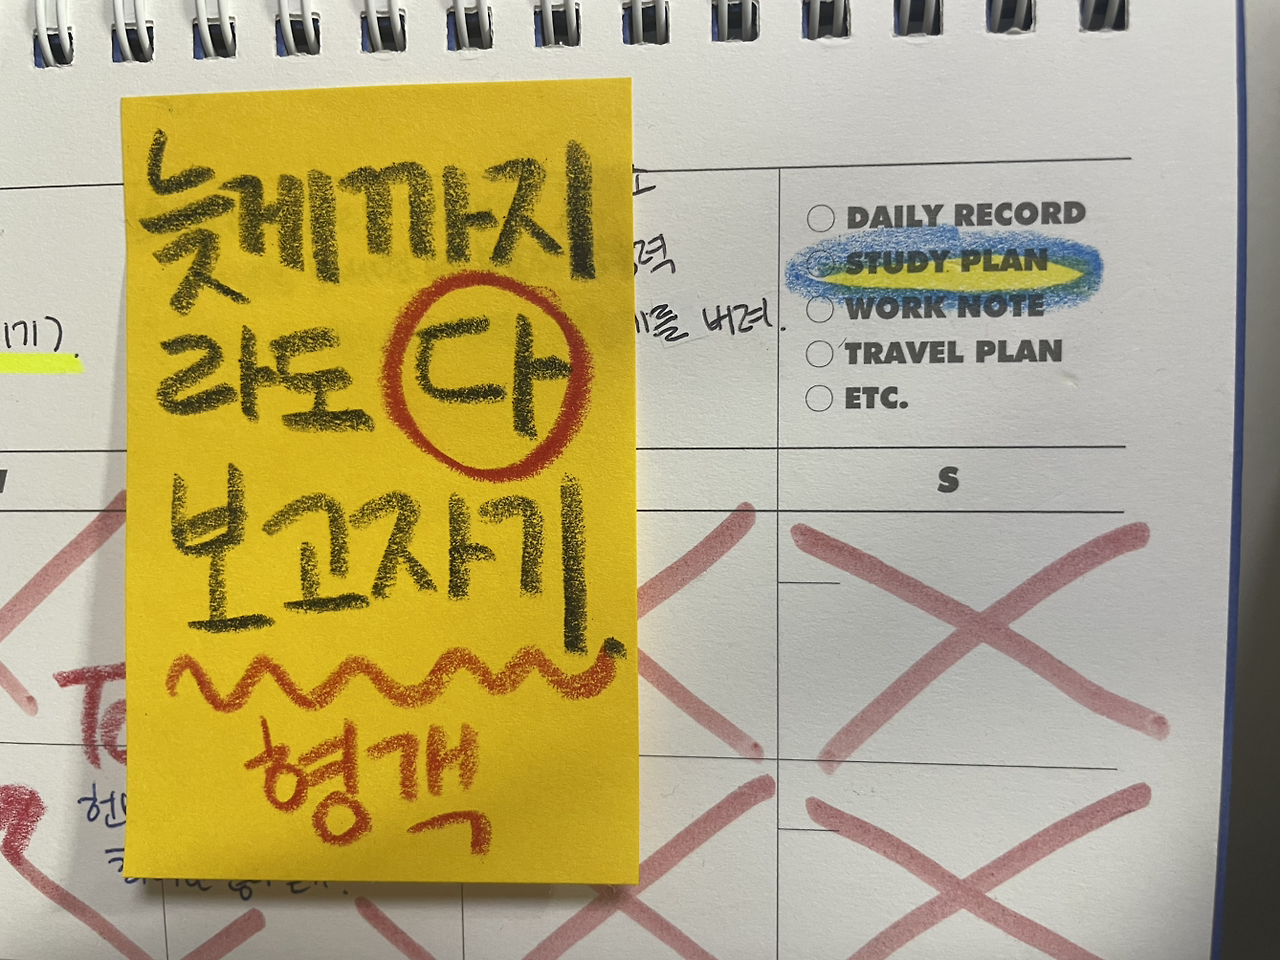 늦게까지
라도 다
보고자기.
형객
버려.
DAILY RECORD
STUDY PLAN
WORK NOTE
TRAVEL PLAN
ETC.
S